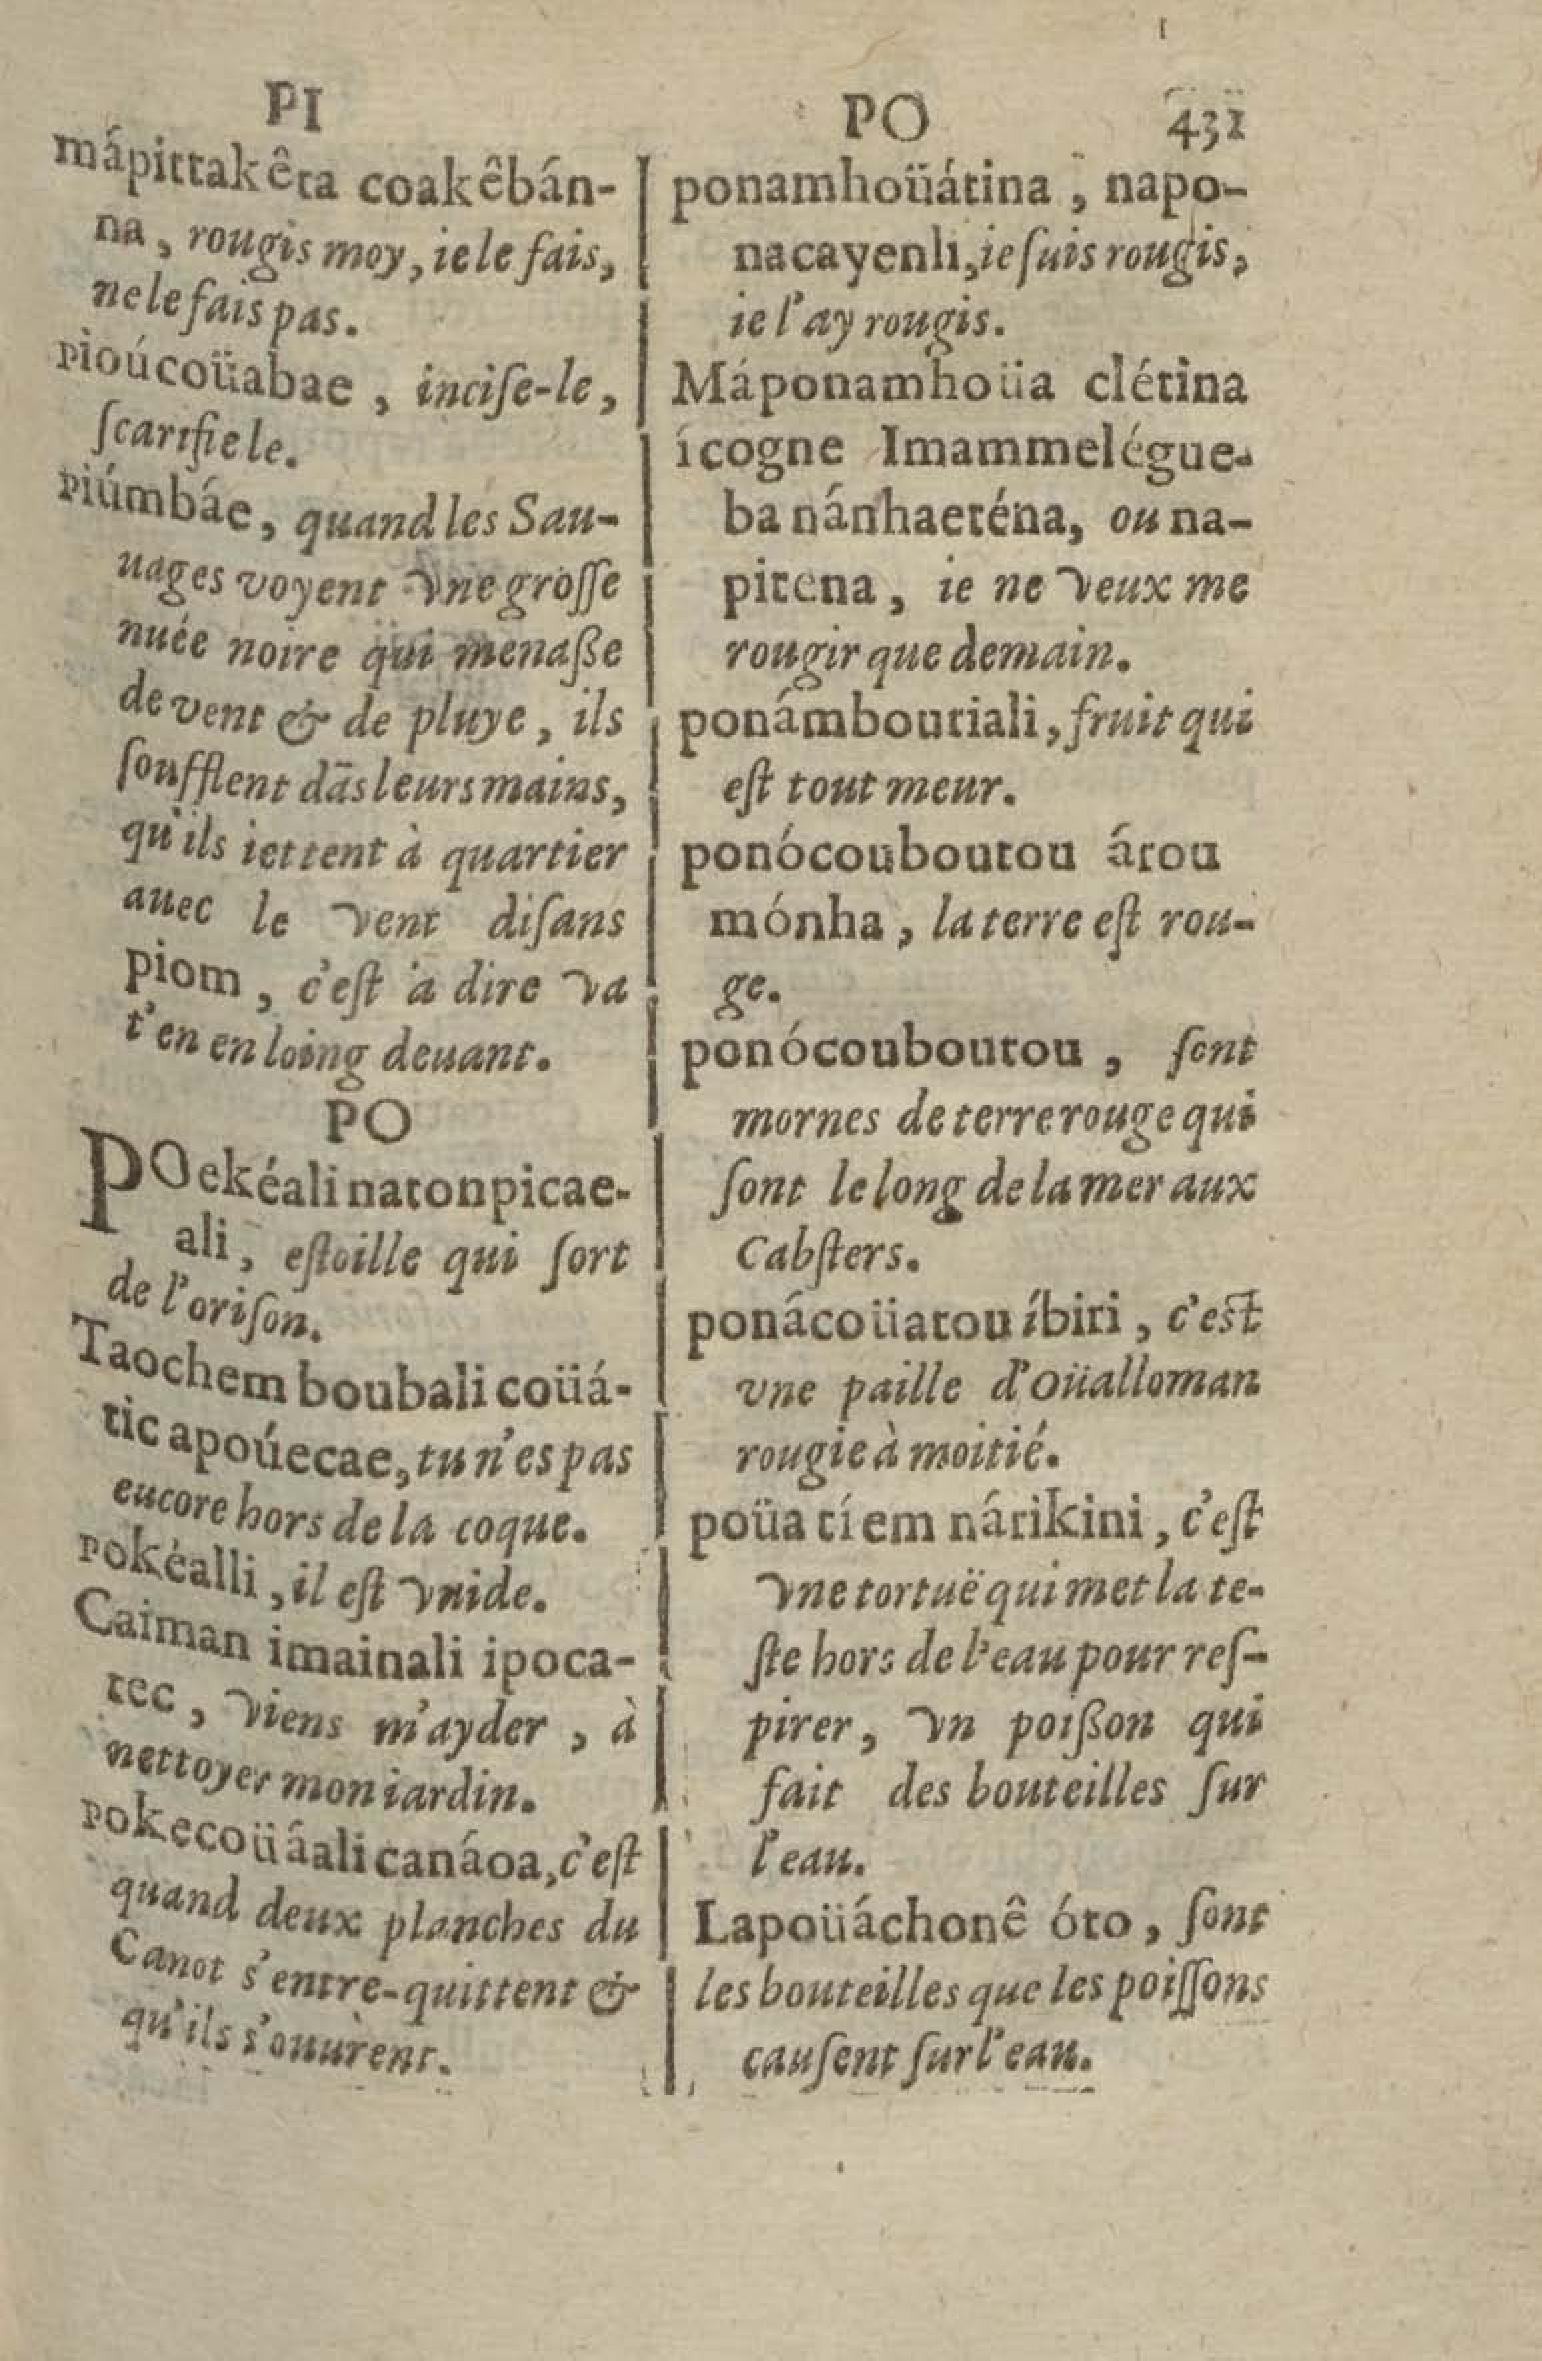 PI
mápittakêta coakêbán-
na, rougis moy, ie le fais,
ne le fais pas.
pioúcoüabae, incise-le,
ſcarifie le.
piúmbáe, quand les Sau-
uages voyent vne groſſe
nuée noire qui menaße
de vent & de pluye, ils
ſoufflent dãs leurs mains,
qu'ils iettent à quartier
auec le vent diſans
piom, c'eſt a dire va
t'en en loing deuant.
PO
POekéali natonpicae-
ali, eſtoille qui ſort
de l'oriſon.
Taochem boubali coüá-
tic apoúecae, tu n'es pas
eucore hors de la coque.
pokéalli, il eſt vuide.
Caiman imainali ipoca-
tec, viens m'ayder, à
nettoyer mon iardin.
pokecoüáali canáoa, c'eſt
quand deux planches du
Canot s'entre-quittent &
qu'ils s'ouurent.
PO 431
ponamhoüátina, napo-
nacayenli, ie ſuis rougis,
ie l'ay rougis.
Máponamhoüa clétina
ícogne Imammelégue-
ba nánhaeténa, ou na-
pitena, ie ne veux me
rougir que demain.
ponámboutiali, fruit qui
eſt tout meur.
ponócouboutou árou
mónha, la terre eſt rou-
ge.
ponócouboutou, ſont
mornes de terre rouge qui
ſont le long de la mer aux
Cabſters.
ponácoüatou íbiri, c'eſt
vne paille d'oüalloman
rougie à moitié.
poüatíem nárikini, c'eſt
vne tortuë qui met la te-
ſte hors de l'eau pour reſ-
pirer, vn poißon qui
fait des bouteilles ſur
l'eau.
Lapoüáchonê óto, ſont
les bouteilles que les poiſſons
cauſent ſur l'eau.